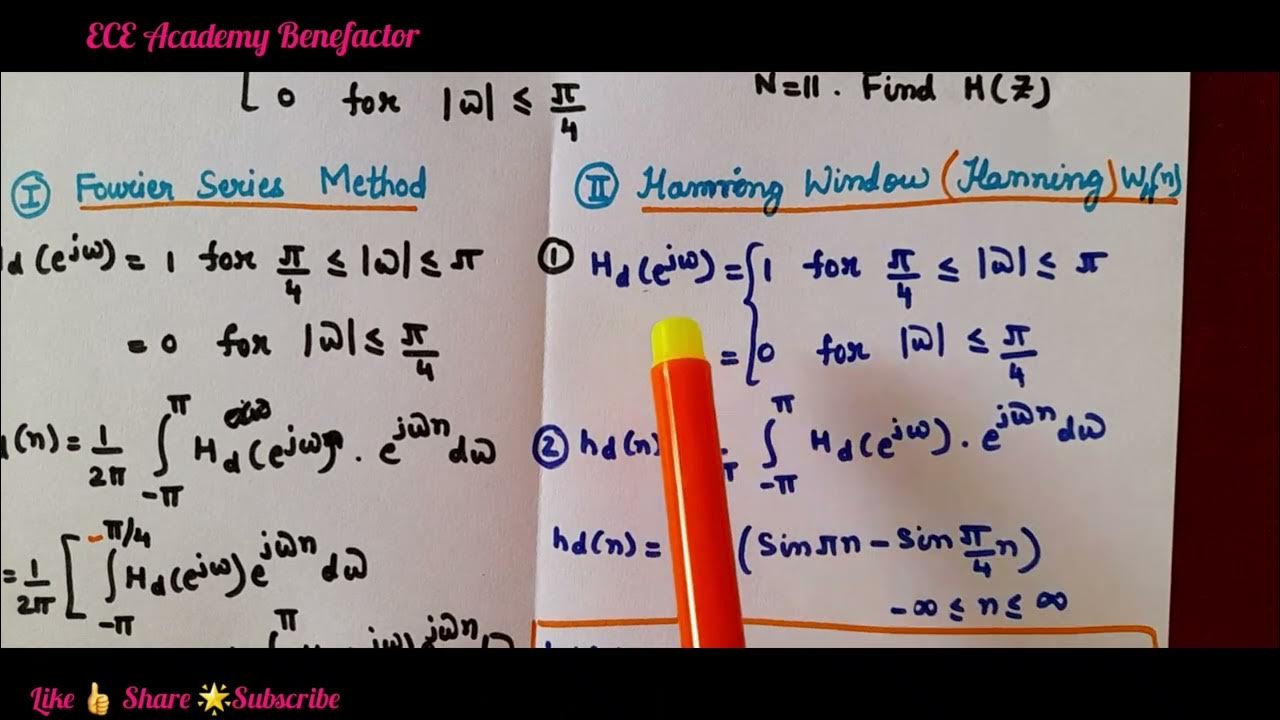 ECE Academy Benefactor
0 for |ω| ≤ π/4
N=11. Find H(Z)
I Fourier Series Method
d(e^jω) = 1 for π/4 ≤ |ω| ≤ π
= 0 for |ω| ≤ π/4
d(n) = 1/2π ∫_-π^π H_d(e^jω) . e^jωn dω
= 1/2π [ ∫_-π^-π/4 H_d(e^jω) e^jωn dω
π
II Hanning Window (Hanning) W_H(n)
① H_d(e^jω) = { 1 for π/4 ≤ |ω| ≤ π
= { 0 for |ω| ≤ π/4
② h_d(n) π ∫_-π^π H_d(e^jω) . e^jωn dω
h_d(n) = (Sin πn - Sin π/4 n)
-∞ ≤ n ≤ ∞
Like 👍 Share 🌟 Subscribe